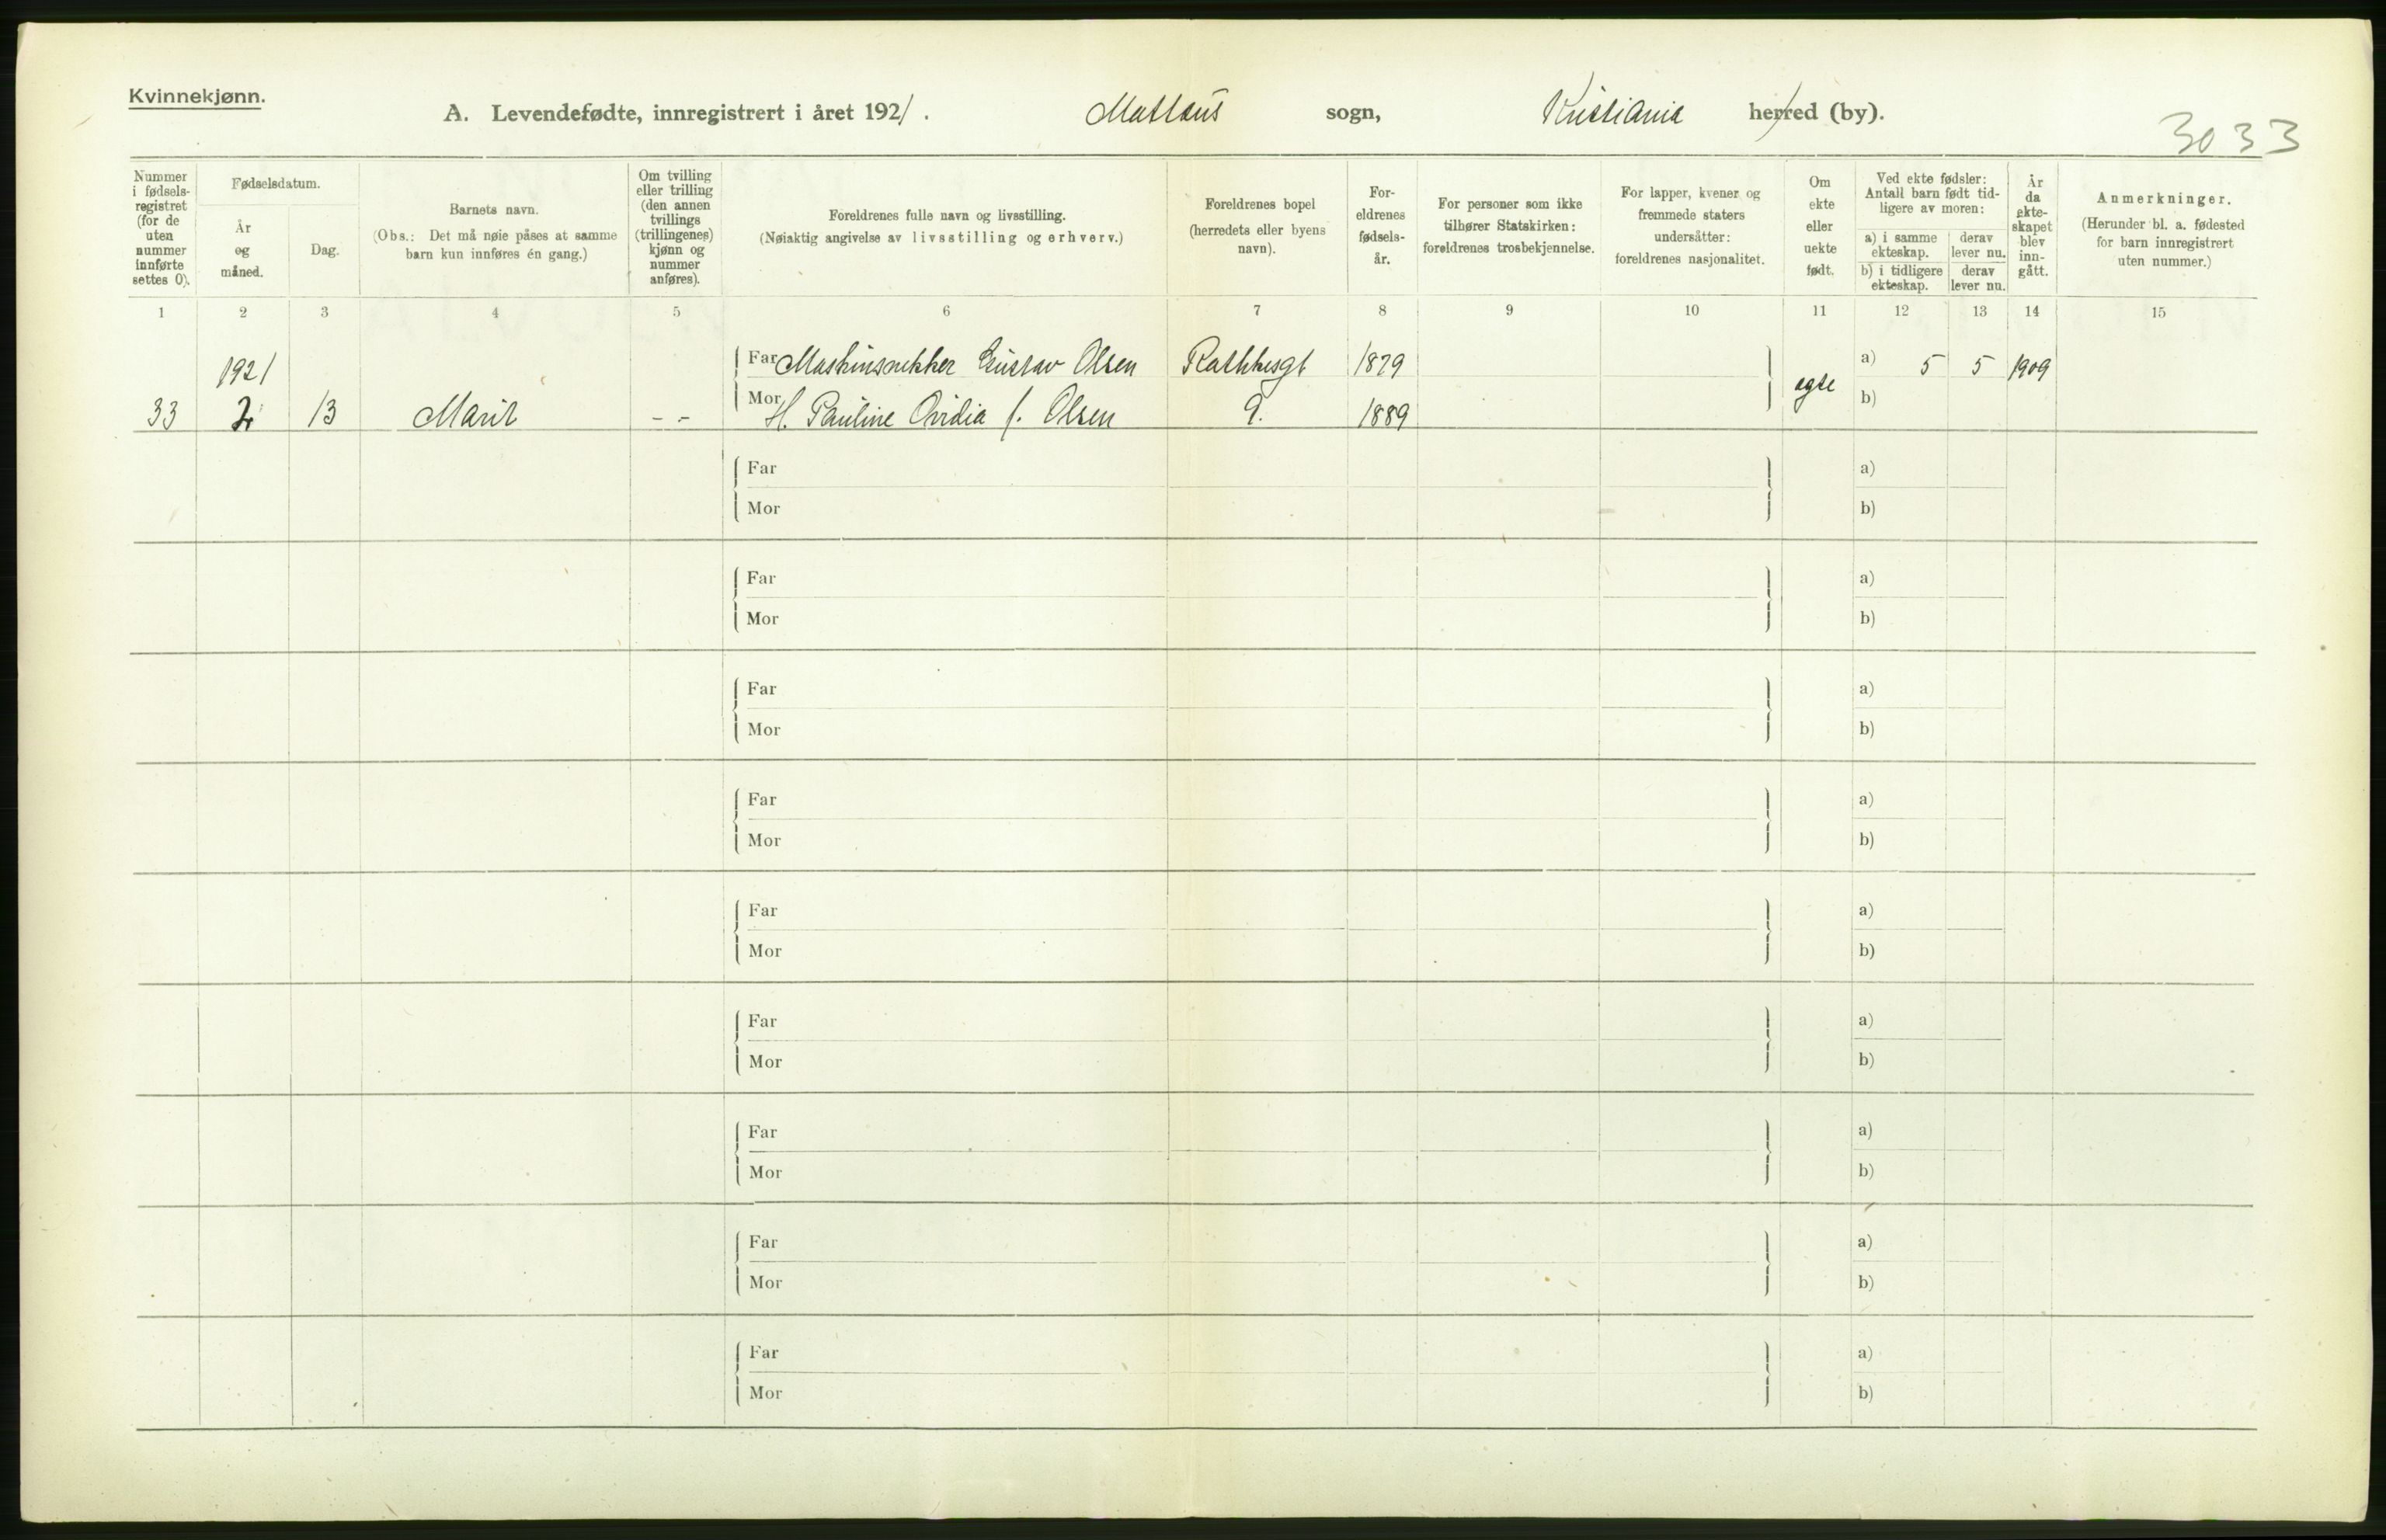 Kvinnekjønn.
A. Levendefødte, innregistrert i året 1921. Mattæus sogn, Kristiania herred (by).
3033
Nummer i fødsels-registret (for de uten nummer innførte settes 0).
Fødselsdatum.
År og måned.
Dag.
Barnets navn.
(Obs.: Det må nøie påses at samme barn kun innføres én gang.)
Om tvilling eller trilling (den annen tvillings (trillingenes) kjønn og nummer anføres).
Foreldrenes fulle navn og livsstilling.
(Nøiaktig angivelse av livsstilling og erhverv.)
Foreldrenes bopel
(herredets eller byens navn).
For-eldrenes fødsels-år.
For personer som ikke tilhører Statskirken: foreldrenes trosbekjennelse.
For lapper, kvener og fremmede staters undersåtter: foreldrenes nasjonalitet.
Om ekte eller uekte født.
Ved ekte fødsler: Antall barn født tid-ligere av moren:
a) i samme ekteskap.
derav lever nu.
b) i tidligere ekteskap.
derav lever nu.
År da ekte-skapet blev inn-gått.
Anmerkninger.
(Herunder bl. a. fødested for barn innregistrert uten nummer.)
1 2 3 4 5 6 7 8 9 10 11 12 13 14 15
1921 Far Gustav Olsen 1879 a) 5 5 1909
33 2 13 Marit -- Mor H. Pauline Ovidia f. Olsen 9. 1889 egte b)
Far a)
Mor b)
Far a)
Mor b)
Far a)
Mor b)
Far a)
Mor b)
Far a)
Mor b)
Far a)
Mor b)
Far a)
Mor b)
Far a)
Mor b)
Far a)
Mor b)